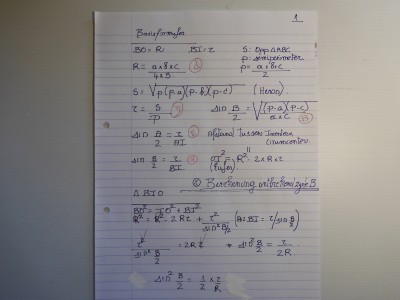 1
Basisformules
BO = R. BI = r S: Opp ΔABC
p: semiperimeter
R = a x b x c / 4 x S p = a + b + c / 2
S = √p(p-a)(p-b)(p-c) (Heron)
r = S / p sin B/2 = √(p-a)(p-c) / a x c
sin B/2 = r / AI Afstand tussen Incenter
Circumcenter
sin B/2 = r / BI OI² = R² - 2 x R x r
(Euler)
© Berekening
B
Δ BIO
BO² = IO² + BI²
R² = R² - 2Rr + r² / sin² B/2 (B = BI = r / sin B/2)
r² / sin² B/2 = 2Rr * sin² B/2 = r / 2R
sin² B/2 = 1/2 x r/R